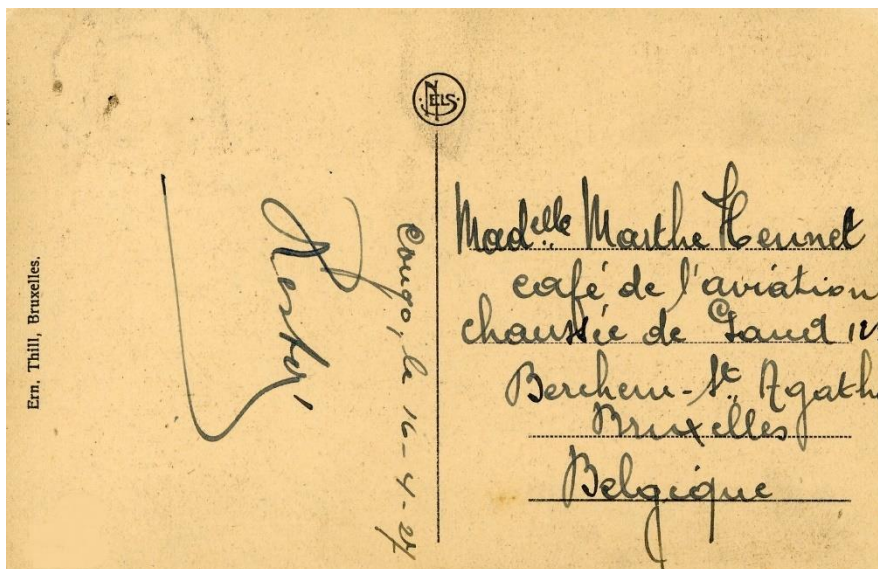 NELS
Ern. Thill, Bruxelles.
Congo, le 16-4-27
Mad.elle Marthe Hennet
café de l'aviation
chaussée de Gand 12
Berchem-Ste Agathe
Bruxelles
Belgique